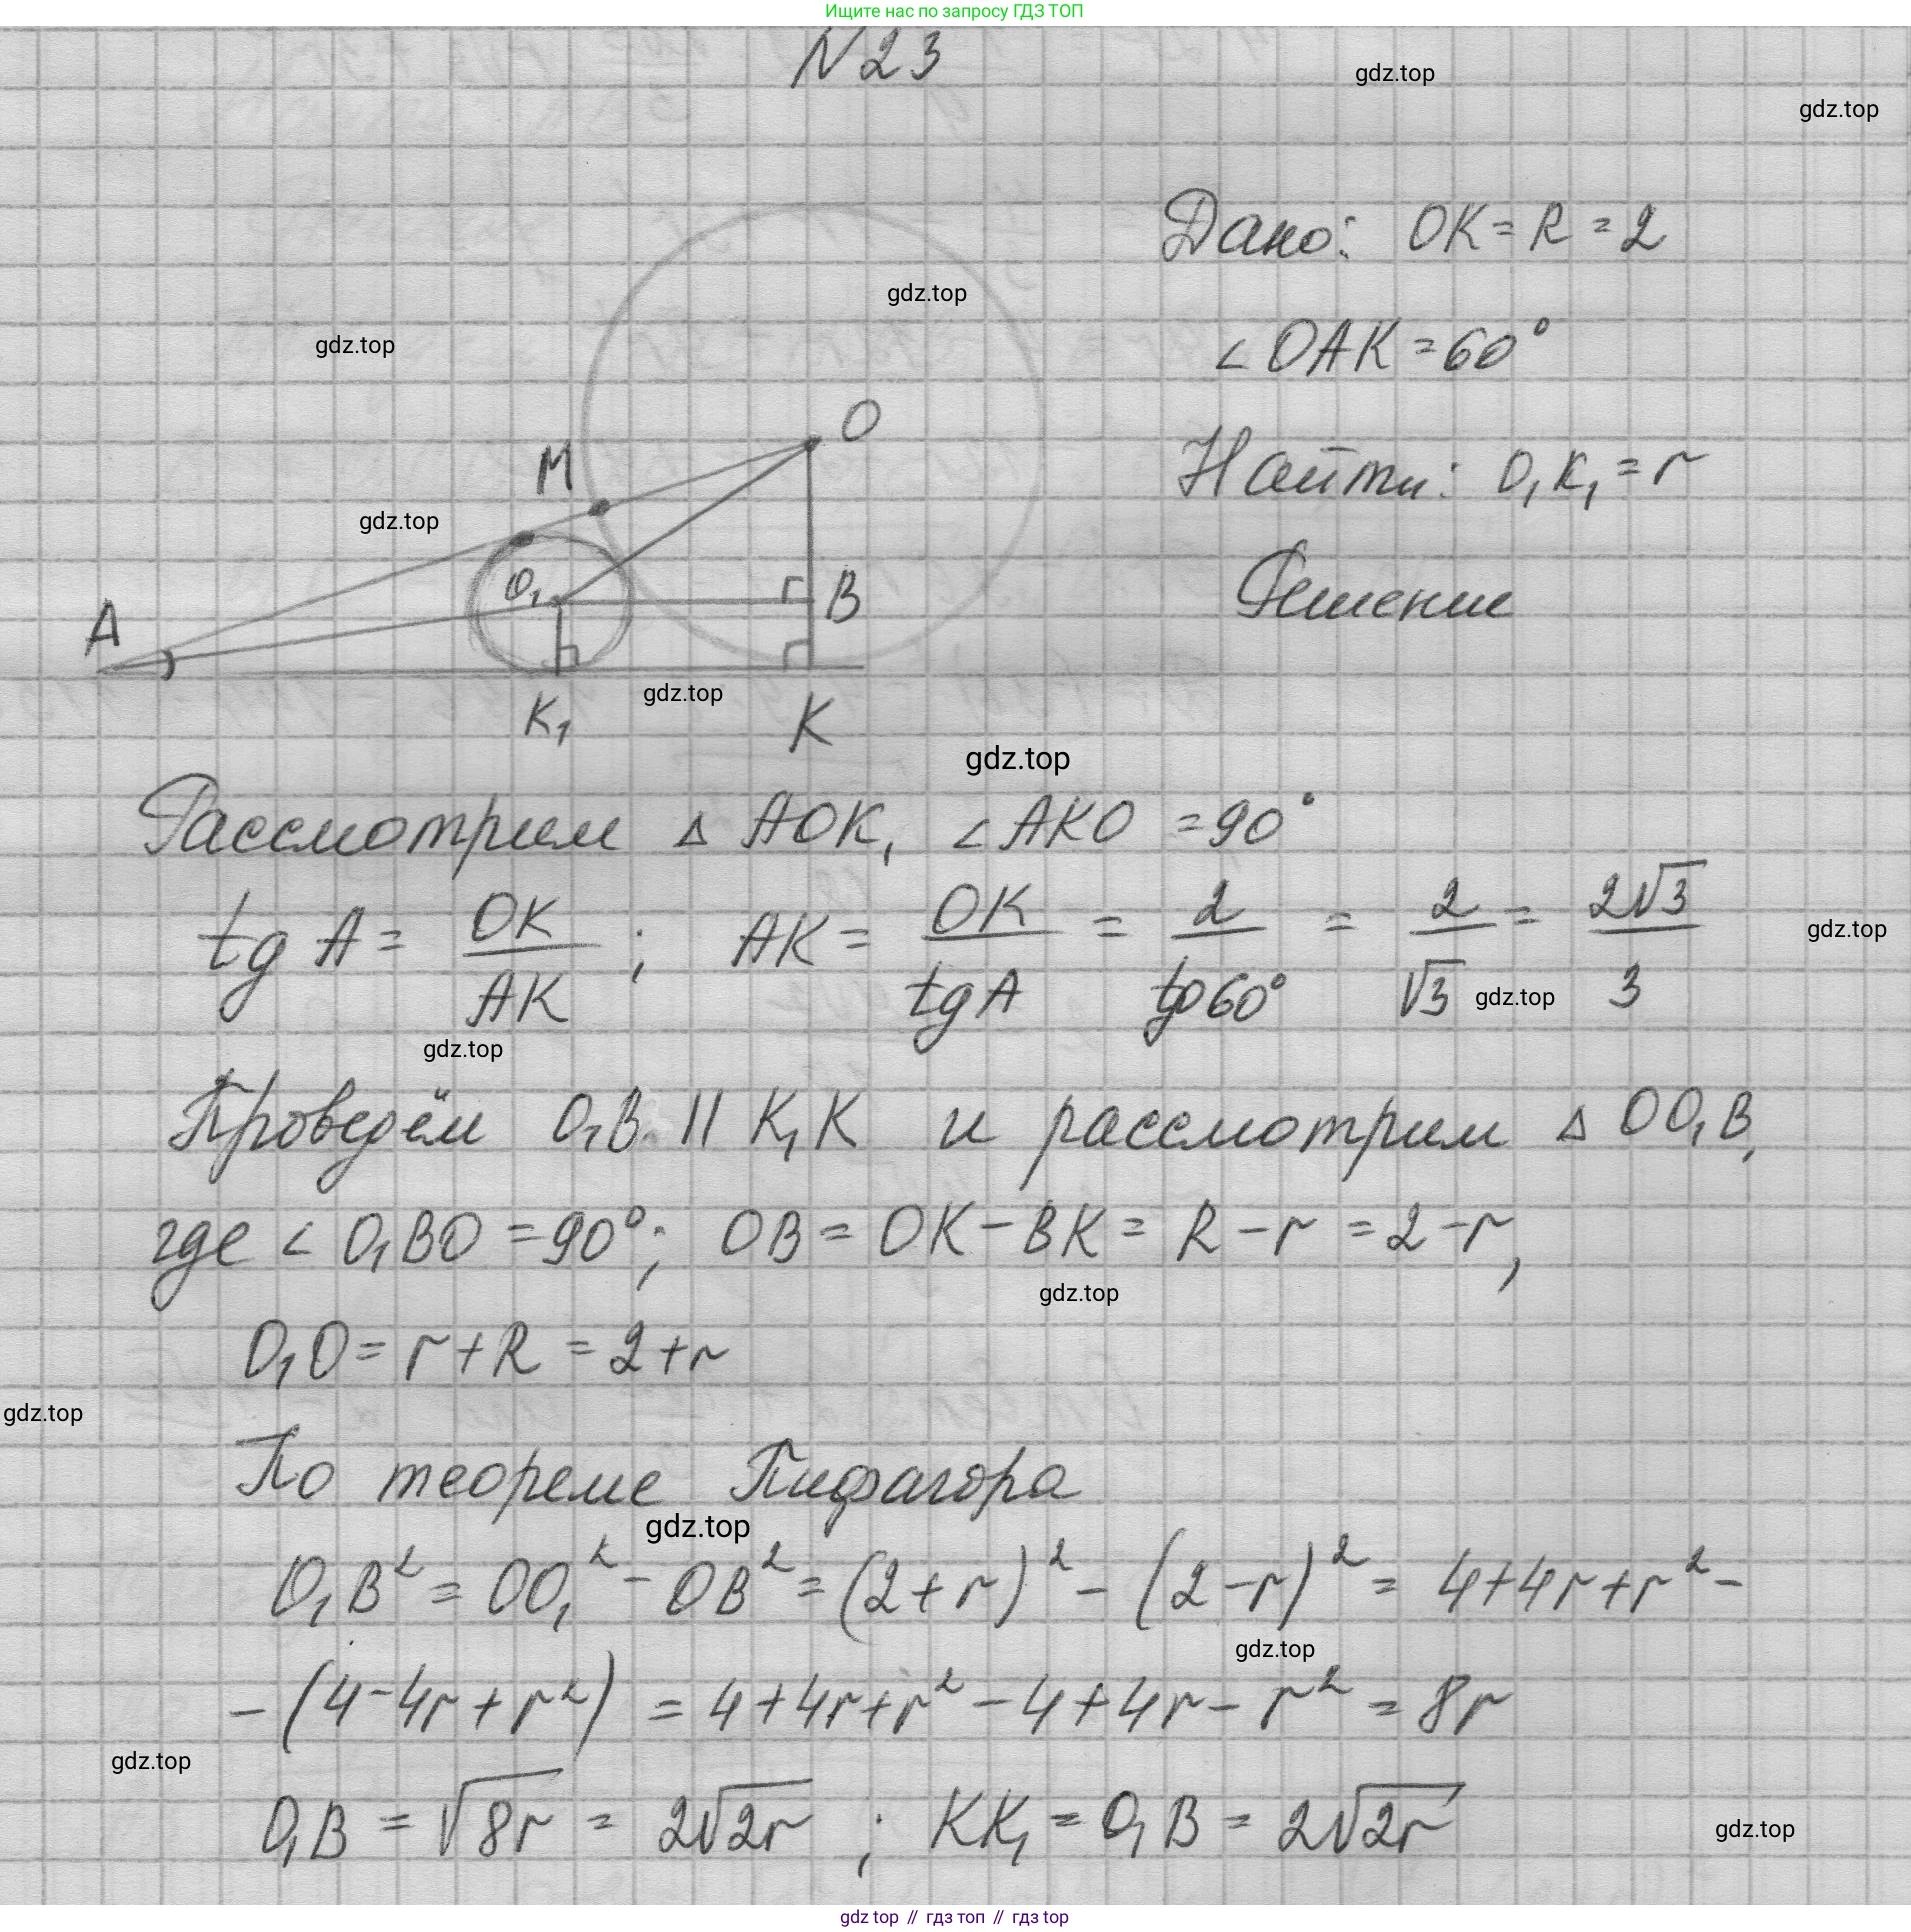 Ищите нас по запросу ГДЗ ТОП
N23
gdz.top
gdz.top
Дано: OK = R = 2
gdz.top
gdz.top
∠OAK = 60°
O
M
Найти: O₁K₁ = r
gdz.top
O₁
B
Решение
A
K₁
gdz.top
K
gdz.top
Рассмотрим Δ AOK, ∠AKO = 90°
tg A = OK/AK ; AK = OK/tgA = 2/tg60° = 2/√3 = 2√3/3
gdz.top
gdz.top
gdz.top
Проведём O₁B || K₁K и рассмотрим Δ OO₁B,
где ∠ O₁BO = 90°; OB = OK - BK = R - r = 2 - r,
gdz.top
O₁O = r + R = 2 + r
gdz.top
По теореме Пифагора
gdz.top
O₁B² = OO₁² - OB² = (2 + r)² - (2 - r)² = 4 + 4r + r² -
gdz.top
- (4 - 4r + r²) = 4 + 4r + r² - 4 + 4r - r² = 8r
gdz.top
O₁B = √8r = 2√2r ; KK₁ = O₁B = 2√2r
gdz.top
gdz top // гдз топ // гдз top